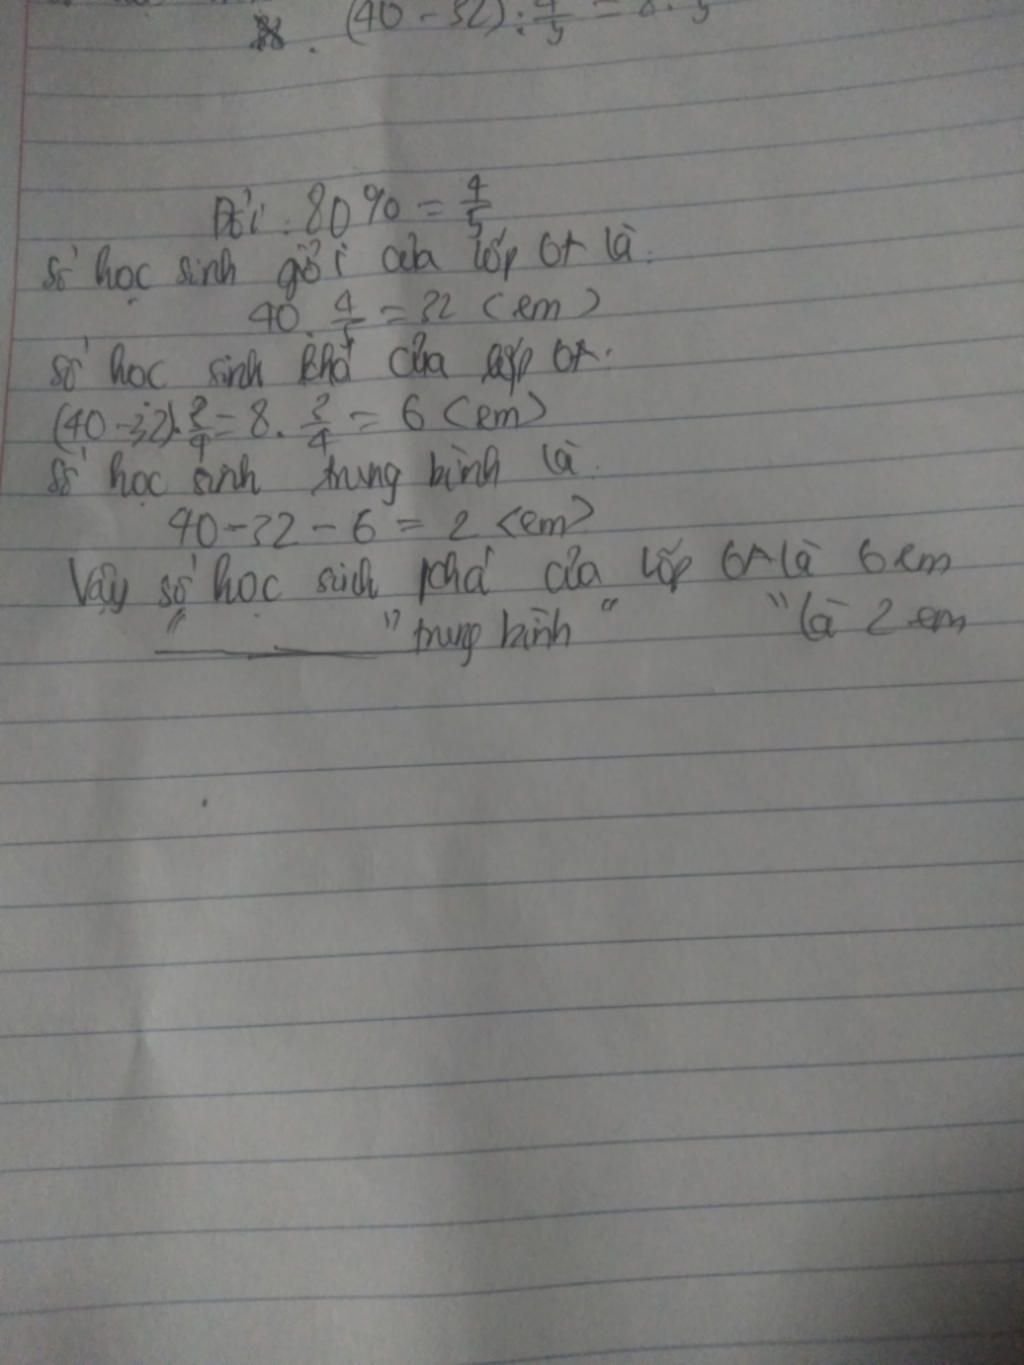 (40 - 32) : 4/5 = 8 . 5
Đổi : 80% = 4/5
Số học sinh giỏi của lớp 6A là :
40 . 4/5 = 32 (em)
Số học sinh khá của lớp 6A :
(40 - 32) . 3/4 = 8 . 3/4 = 6 (em)
Số học sinh trung bình là :
40 - 32 - 6 = 2 (em)
Vậy số học sinh khá của lớp 6A là 6 em
" ——— " trung bình " " là 2 em